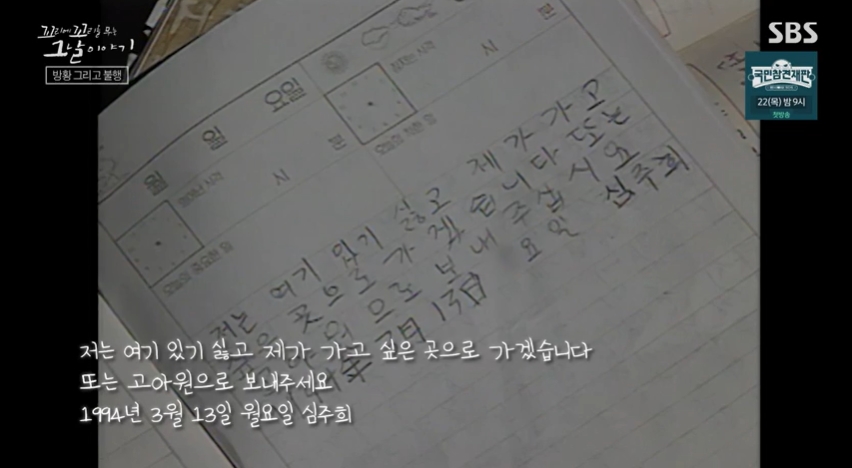 꼬리에 꼬리를 무는
그날 이야기
방황 그리고 불행
SBS
국민참견재판
22(목) 밤 9시
첫방송
월 일 요일
일어난 시각
시 분
잠자는 시각
시 분
오늘의 중요한 일
저는 여기 있기 싫고 제가 가고
싶은 곳으로 가겠습니다 또는
고아원으로 보내 주십시오
1994年 3月 13日 요일 심주희
저는 여기 있기 싫고 제가 가고 싶은 곳으로 가겠습니다
또는 고아원으로 보내주세요
1994년 3월 13일 월요일 심주희